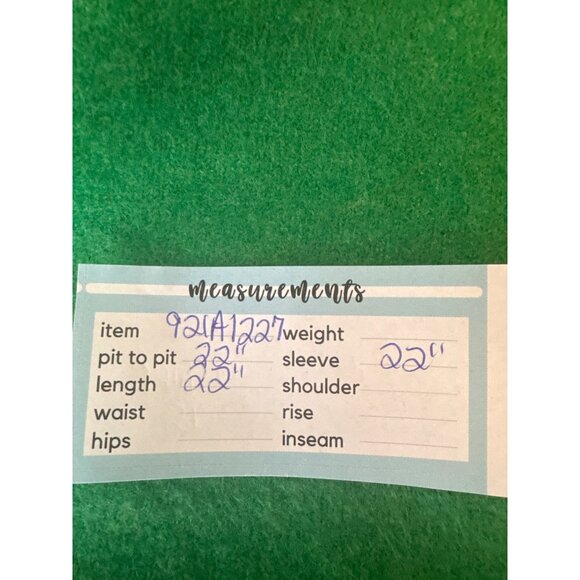 measurements
item 921A1227 weight
pit to pit 22" sleeve 22"
length 22" shoulder
waist rise
hips inseam